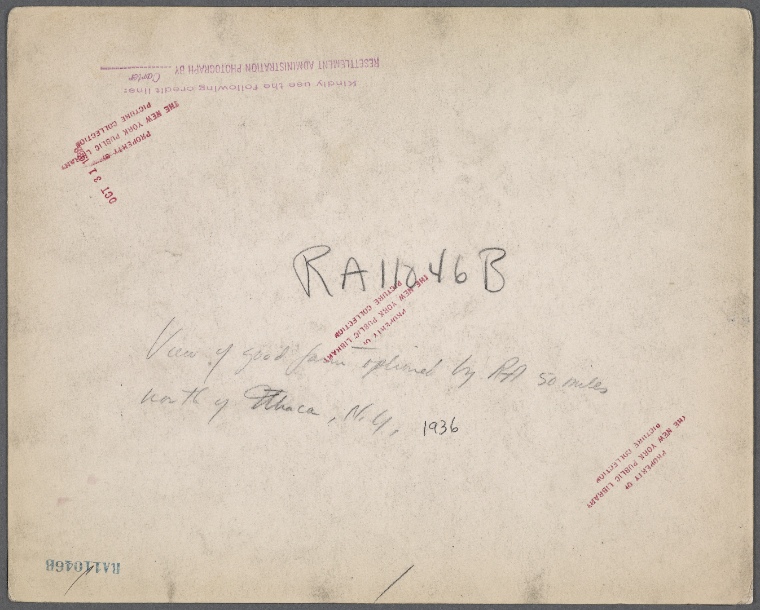 Kindly use the following credit line:
RESETTLEMENT ADMINISTRATION PHOTOGRAPH BY Carter
PROPERTY OF
THE NEW YORK PUBLIC LIBRARY
PICTURE COLLECTION
OCT 31
RA11046B
PROPERTY OF
THE NEW YORK PUBLIC LIBRARY
PICTURE COLLECTION
View of good farm optioned by RA 50 miles
north of Ithaca, N.Y., 1936
PROPERTY OF
THE NEW YORK PUBLIC LIBRARY
PICTURE COLLECTION
RA11046B